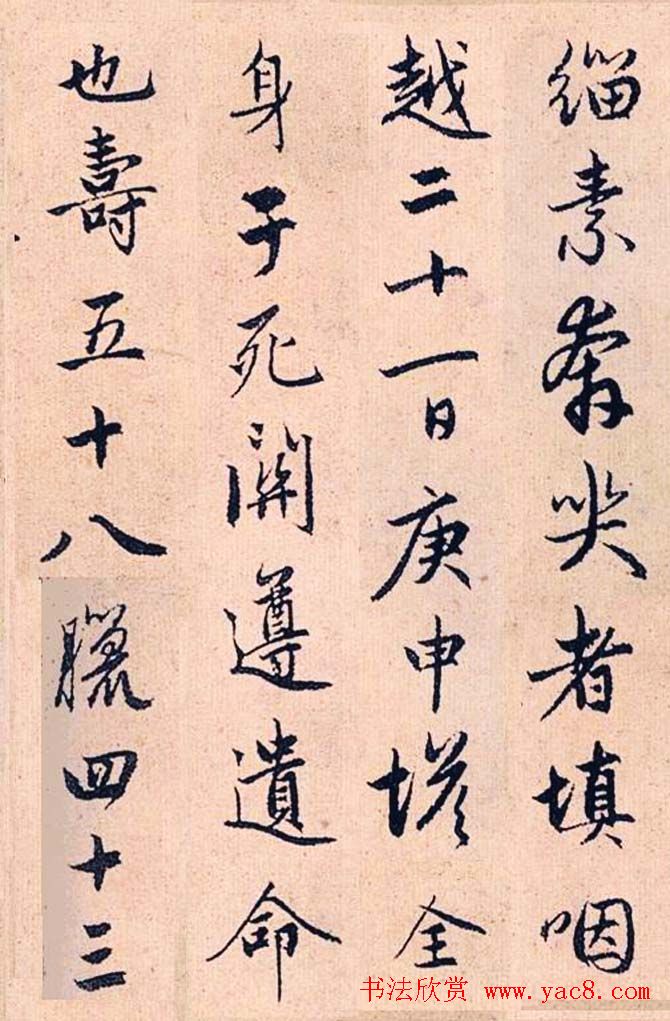 緇素奔哭者填咽
越二十一日庚申塔全
身于死關遵遺命
也壽五十八臘四十三
书法欣赏 www.yac8.com